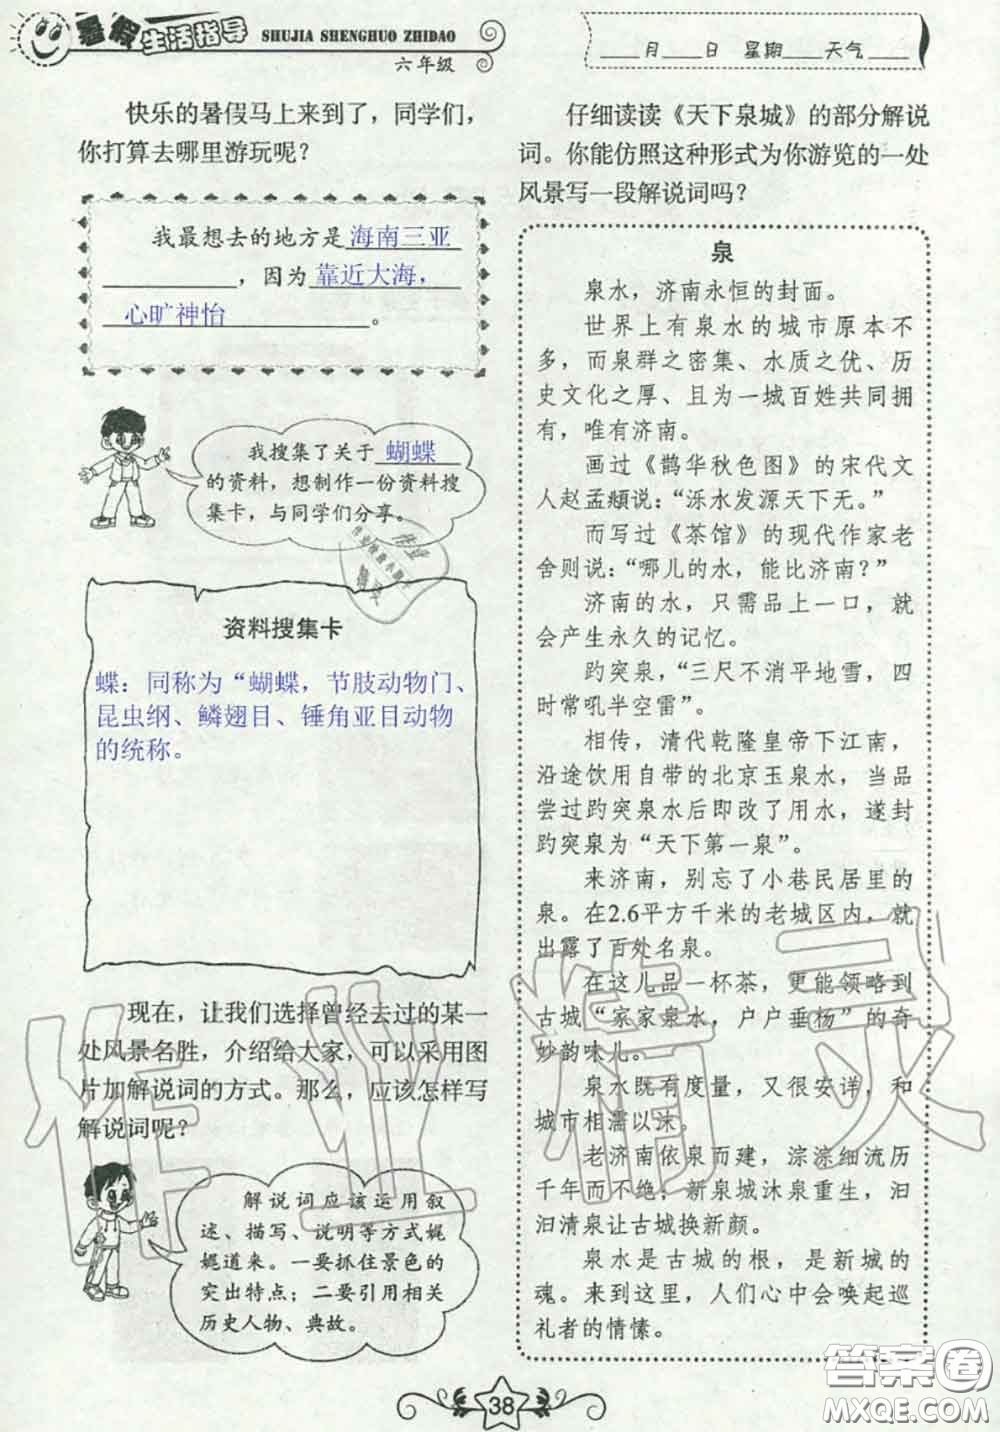 暑假生活指导 SHUJIA SHENGHUO ZHIDAO
六年级
____月____日 星期____天气____
快乐的暑假马上来到了，同学们，
你打算去哪里游玩呢？
我最想去的地方是 海南三亚
，因为 靠近大海，
心旷神怡 。
我搜集了关于 蝴蝶
的资料，想制作一份资料搜
集卡，与同学们分享。
资料搜集卡
蝶：同称为“蝴蝶，节肢动物门、
昆虫纲、鳞翅目、锤角亚目动物
的统称。
现在，让我们选择曾经去过的某一
处风景名胜，介绍给大家，可以采用图
片加解说词的方式。那么，应该怎样写
解说词呢？
解说词应该运用叙
述、描写、说明等方式娓
娓道来。一要抓住景色的
突出特点；二要引用相关
历史人物、典故。
仔细读读《天下泉城》的部分解说
词。你能仿照这种形式为你游览的一处
风景写一段解说词吗？
泉
泉水，济南永恒的封面。
世界上有泉水的城市原本不
多，而泉群之密集、水质之优、历
史文化之厚、且为一城百姓共同拥
有，唯有济南。
画过《鹊华秋色图》的宋代文
人赵孟頫说：“泺水发源天下无。”
而写过《茶馆》的现代作家老
舍则说：“哪儿的水，能比济南？”
济南的水，只需品上一口，就
会产生永久的记忆。
趵突泉，“三尺不消平地雪，四
时常吼半空雷”。
相传，清代乾隆皇帝下江南，
沿途饮用自带的北京玉泉水，当品
尝过趵突泉水后即改了用水，遂封
趵突泉为“天下第一泉”。
来济南，别忘了小巷民居里的
泉。在2.6平方千米的老城区内，就
出露了百处名泉。
在这儿品一杯茶，更能领略到
古城“家家泉水，户户垂杨”的奇
妙韵味儿。
泉水既有度量，又很安详，和
城市相濡以沐。
老济南依泉而建，淙淙细流历
千年而不绝；新泉城沐泉重生，汩
汩清泉让古城换新颜。
泉水是古城的根，是新城的
魂。来到这里，人们心中会唤起巡
礼者的情愫。
38
作业精灵
答案圈
MXQE.COM